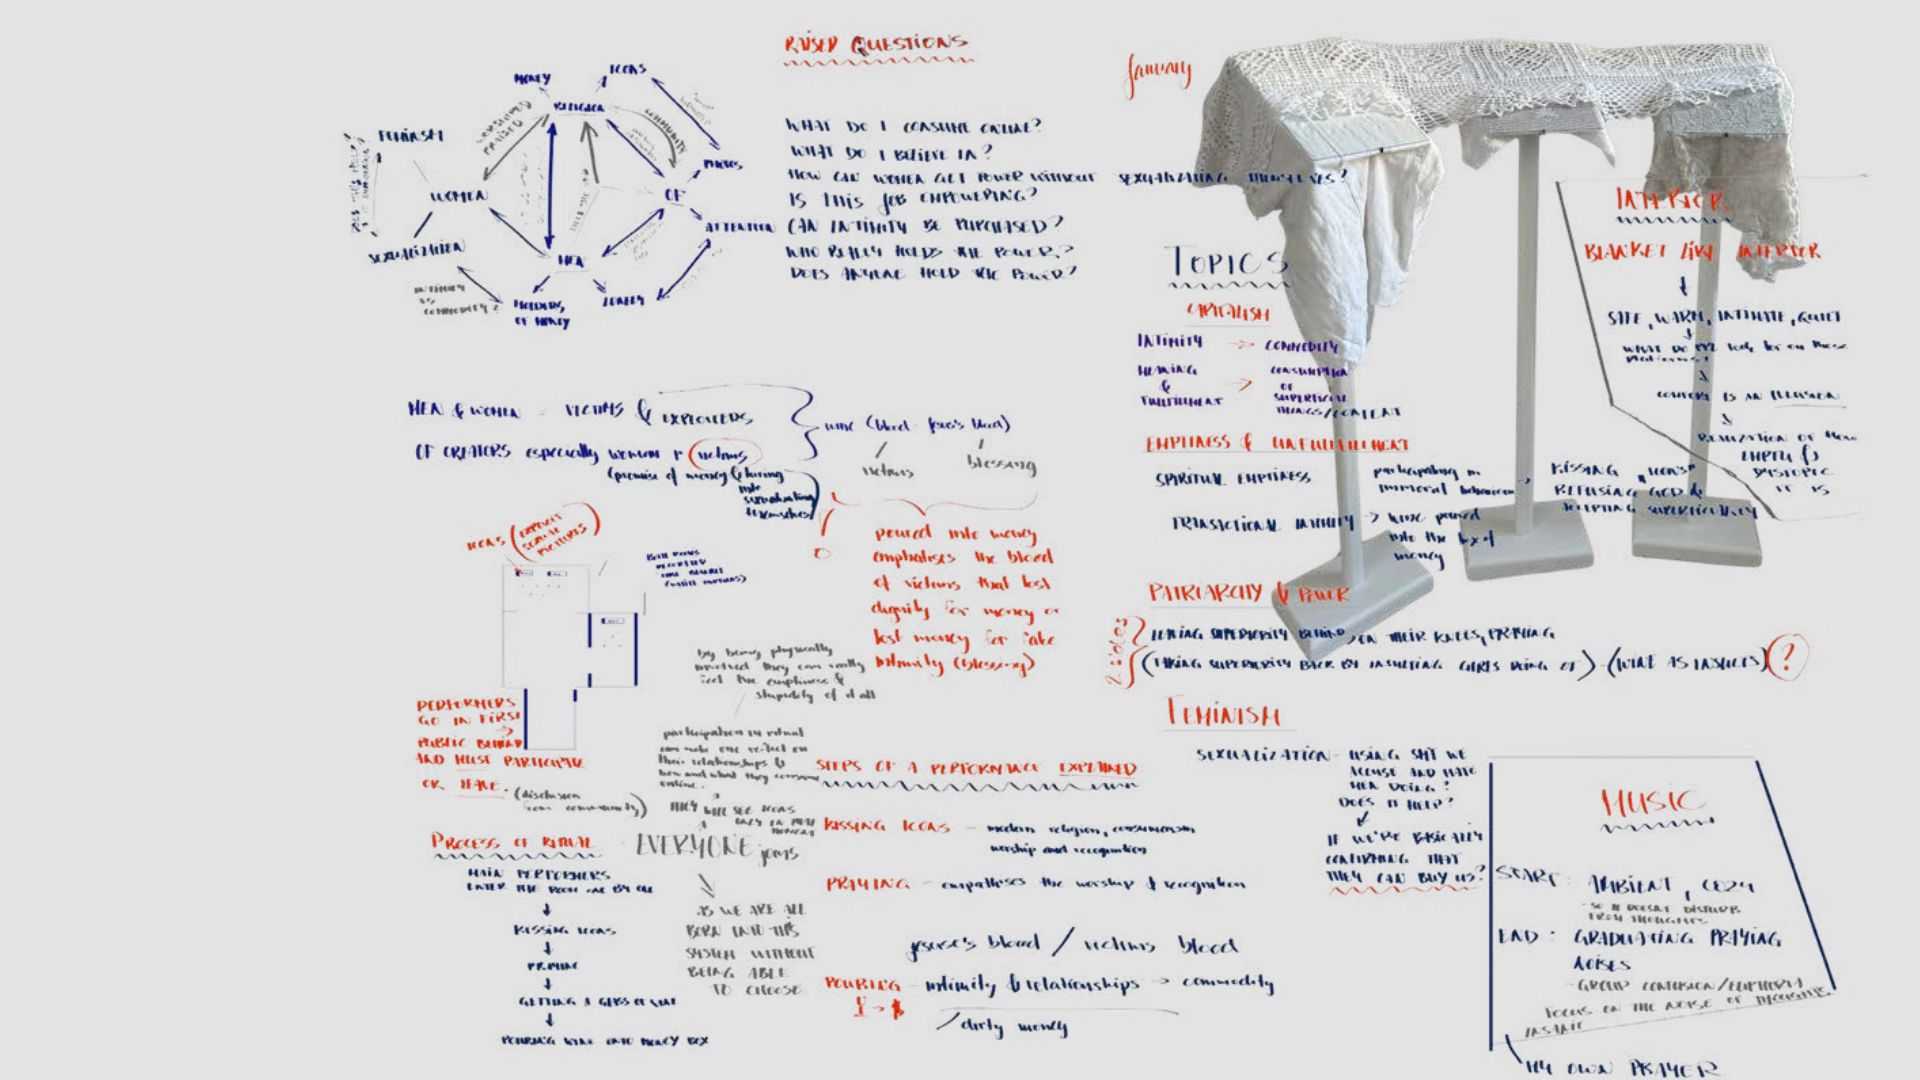 RAISED QUESTIONS
WHAT DO I CONSUME ONLINE?
WHAT DO I BELIEVE IN?
HOW CAN WOMEN GET POWER WITHOUT SEXUALIZING THEMSELVES?
IS THIS JOB EMPOWERING?
CAN INTIMITY BE PURCHASED?
WHO REALLY HOLDS THE POWER?
DOES ANYONE HOLD THE POWER?
MONEY
ICONS
RELIGION
COMMUNITY
FEMINISM
PHOTOS
WOMEN
OF
ATTENTION
SEXUALIZATION
MEN
INTIMITY
AS
COMMODITY?
HOLDERS
OF MONEY
LONELY
MEN & WOMEN - VICTIMS & EXPLOITERS
OF CREATORS especially WOMEN → victims
(promise of money & luring
into
sexualizing
themselves)
wine (blood - jesus's blood)
victims
blessing
poured into money
emphatises the blood
of victims that lost
dignity for money or
lost money for fake
intimity (blessing)
ICONS (EXPLICIT
SEXUAL
PICTURES)
BOTH ROOMS
PERFORMERS
GO IN FIRST
→
PUBLIC BEHIND
AND MUST PARTICIPATE
OR LEAVE.
(disclusion
from community)
by being physically
involved they can really
feel the emptiness &
stupidity of it all
participation in ritual
can make one reflect on
their relationships &
how and what they consume
online.
THEY WILL SEE ICONS
ONLY IN THAT
MOMENT
EVERYONE joins
AS WE ARE ALL
BORN INTO THIS
SYSTEM WITHOUT
BEING ABLE
TO CHOOSE
PROCESS OF RITUAL
MAIN PERFORMERS
ENTER THE ROOM ONE BY ONE
KISSING ICONS
PRAYING
GETTING A GLASS OF WINE
POURING WINE INTO MONEY BOX
STEPS OF A PERFORMANCE EXPLAINED
KISSING ICONS - modern religion, consumerism
worship and recognition
PRAYING - empathises the worship & recognition
jesuse's blood / victims blood
POURING - intimity & relationships → commodity
→ $
/ dirty money
January
TOPICS
CAPITALISM
INTIMITY → COMMODITY
MEANING
&
FULFILLMENT
→
CONSUMPTION
OF
SUPERFICIAL
THINGS/CONTENT
EMPTINESS & UNFULFILLMENT
SPIRITUAL EMPTINESS
participating in
immoral behaviour →
KISSING "ICONS"
REFUSING GOD &
ACCEPTING SUPERFICIALITY
TRANSACTIONAL INTIMITY → wine poured
into the box of
money
PATRIARCHY & POWER
2 sides
LEAVING SUPERIORITY BEHIND, ON THEIR KNEES, PRAYING
(TAKING SUPERIORITY BACK BY INSULTING GIRLS DOING OF) - (WINE AS INSULTS) ?
FEMINISM
SEXUALIZATION - USING SHIT WE
ACCUSE AND HATE
MEN DOING?
DOES IT HELP?
IF WE'RE BASICALLY
CONFIRMING THAT
THEY CAN BUY US?
INTERIOR
BLANKET LIKE INTERIOR
SAFE, WARM, INTIMATE, QUIET
WHAT DO we look for on these
platforms?
COMFORT IS AN ILLUSION
REALIZATION OF HOW
EMPTY &
DYSTOPIC
IT IS
MUSIC
START: AMBIENT, COZY
- SO IT DOESNT DISTURB
FROM THOUGHTS
END: GRADUATING PRAYING
NOISES
- GROUP CONFUSION/EUPHORIA
FOCUS ON THE NOISE OF THOUGHTS
INSANE
MY OWN PRAYER